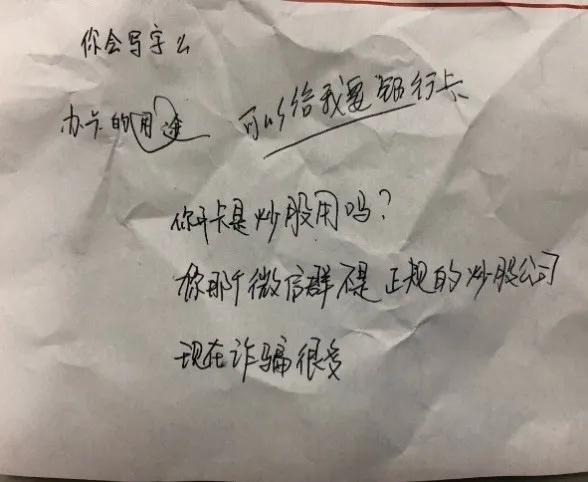 你会写字么
办卡的用途 可以给我看银行卡
你开卡是炒股用吗?
你那个微信群不是正规的炒股公司
现在诈骗很多